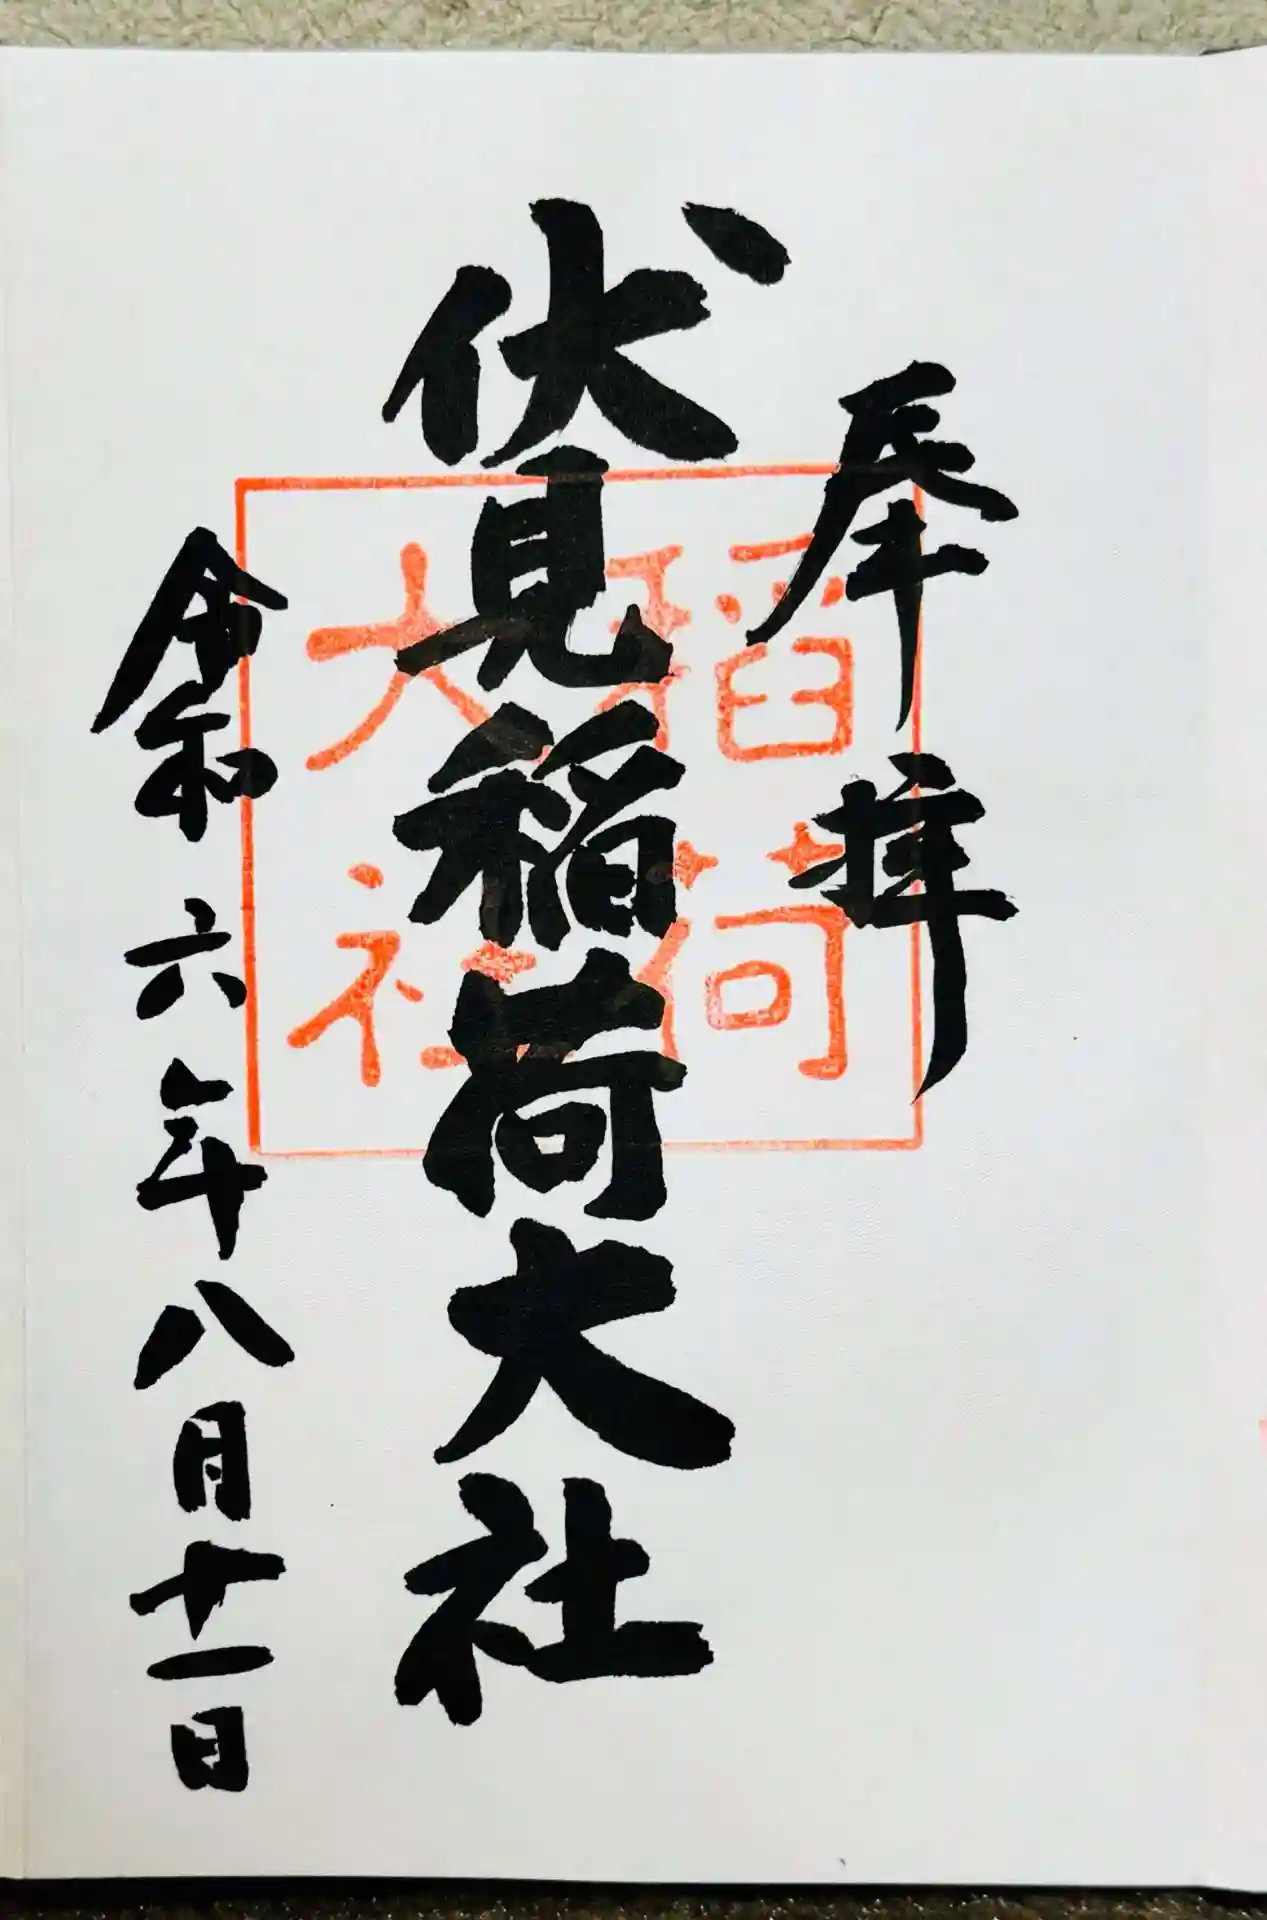 奉拝
伏見稲荷大社
令和六年八月十一日
稲荷
大社